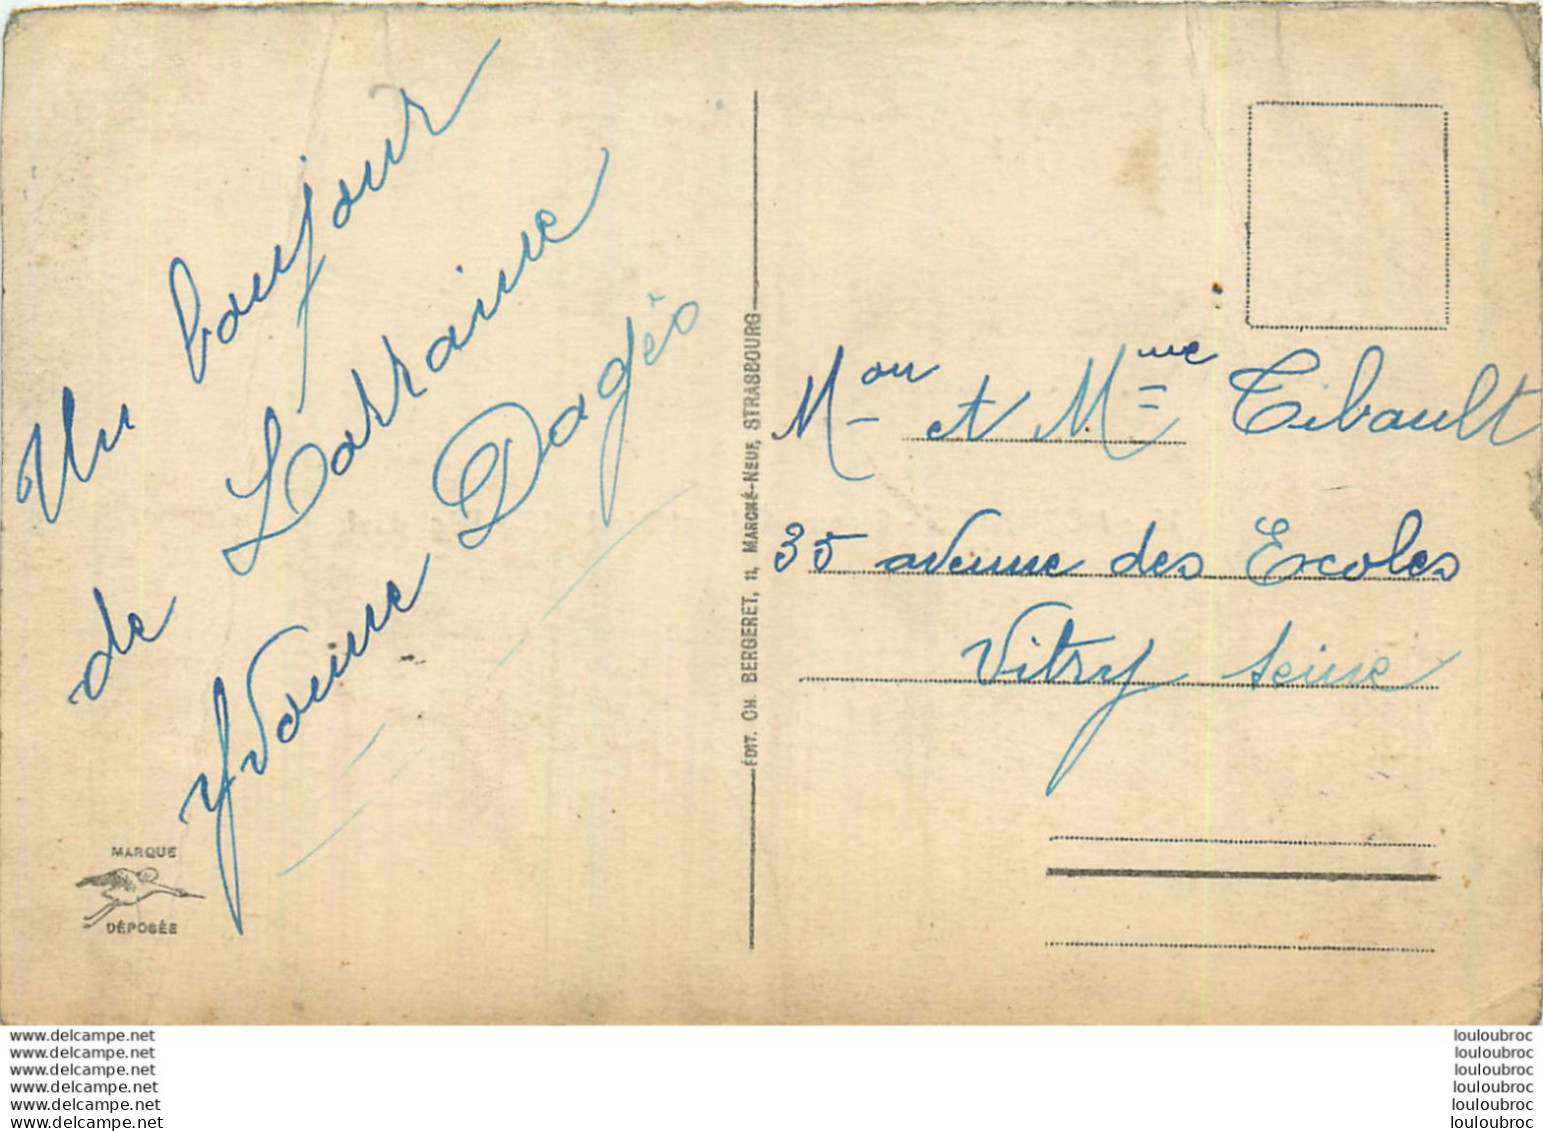 Un bonjour
de Lorraine
Yvonne Dagès
MARQUE
DÉPOSÉE
ÉDIT. CH. BERGERET, 11, MARCHÉ-NEUF, STRASBOURG
Mon et Mme Tibault
35 avenue des Ecoles
Vitry seine
www.delcampe.net
www.delcampe.net
www.delcampe.net
www.delcampe.net
www.delcampe.net
www.delcampe.net
louloubroc
louloubroc
louloubroc
louloubroc
louloubroc
louloubroc